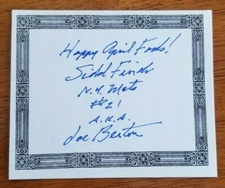 Happy April Fools!
Sidd Finch
N.Y. Mets
#21
a.k.a.
Joe Berton